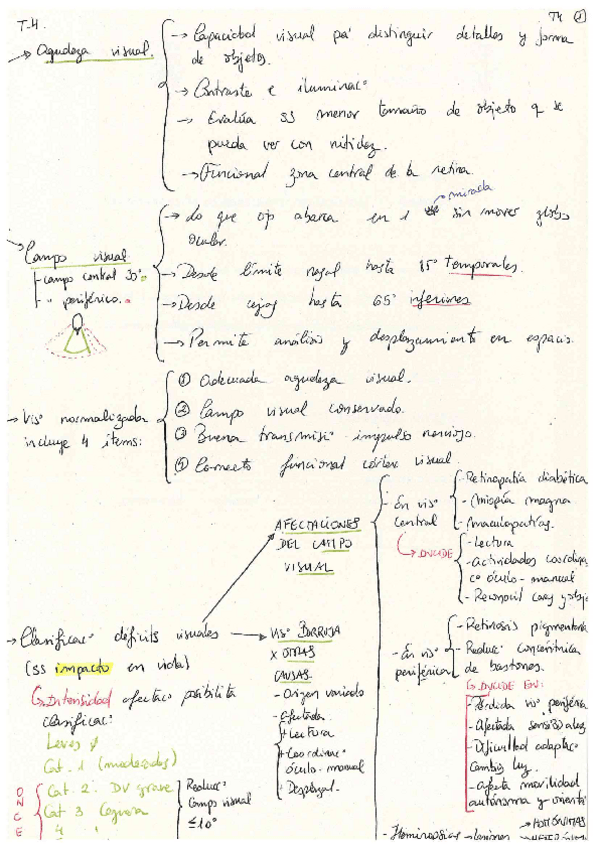 T.4.
T4 ①
→ Agudeza visual.
→ Capacidad visual pa' distinguir detalles y forma
de objetos.
→ Contraste e iluminac°
→ Evalúa ss menor tamaño de objeto q se
pueda ver con nitidez.
→ Funcional zona central de la retina.
→ Campo visual
- campo central 30°.
- " periférico.
→ Lo que ojo abarca en 1 mirada sin mover globo
ocular.
→ Desde límite nasal hasta 85° temporales.
→ Desde cejas hasta 65° inferiores
→ Permite análisis y desplazamiento en espacio.
→ Vis° normalizada
incluye 4 items:
① Adecuada agudeza visual.
② Campo visual conservado.
③ Buena transmis° impulso nervioso.
④ Correcto funcional córtex visual.
AFECTACIONES
DEL CAMPO
VISUAL
- En vis°
central
→ INCIDE
- Retinopatía diabética
- Miopía magna
- Maculopatías.
- Lectura
- Actividades coordina
c° óculo-manual
- Reconocil caras y obje
- En vis°
periférica
- Retinosis pigmentaria
- Reduc° concéntrica
de bastones.
INCIDE EN:
- Pérdida vis° periféric
- Afectada sensib. a luz
- Dificultad adaptac°
cambio luz.
- Afecta movilidad
autónoma y orient
→ Clasificac° déficits visuales
(ss impacto en vida)
Intensidad afectac° posibilita
clasificac°:
Leves
Cat. 1 (moderados)
Cat. 2 DV grave
Cat 3 Ceguera
4 "
ONCE
Reducc°
campo visual
≤10°
VIS° BORROSA
X OTRAS
CAUSAS
- Origen variado
- Afectada
+ Lectura
+ Coordinac°
óculo-manual
+ Desplazal.
- Hemianopsias